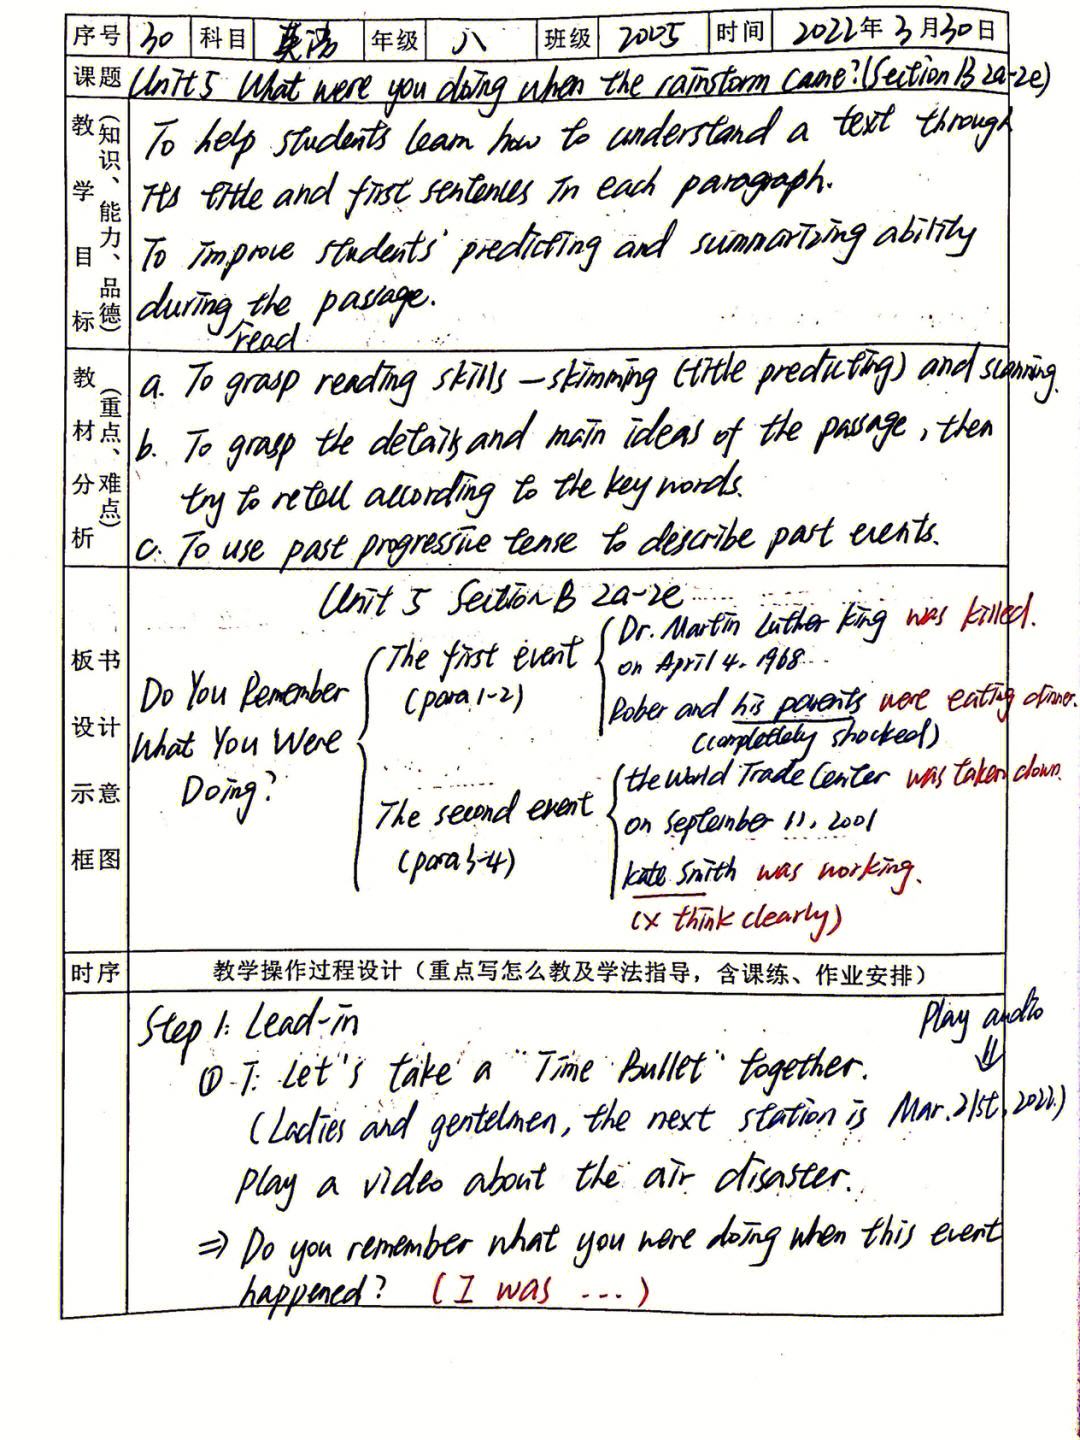 序号 30 科目 英语 年级 八 班级 2005 时间 2022年3月30日
课题 Unit 5 What were you doing when the rainstorm came? (Section B 2a-2e)
教学目标 (知识、能力、品德)
To help students learn how to understand a text through
its title and first sentences in each paragraph.
To improve students' predicting and summarizing ability
during the passage.
read
教材分析 (重点、难点)
a. To grasp reading skills — skimming (title predicting) and scanning.
b. To grasp the details and main ideas of the passage, then
try to retell according to the key words.
c. To use past progressive tense to describe past events.
板书设计示意框图
Unit 5 Section B 2a-2e
Do You Remember
What You Were
Doing?
The first event
(para 1-2)
Dr. Martin Luther King was killed.
on April 4. 1968
Rober and his parents were eating dinner.
(completely shocked)
The second event
(para 3-4)
the World Trade Center was taken down
on September 11, 2001
Kate Smith was working.
(x think clearly)
时序 教学操作过程设计（重点写怎么教及学法指导，含课练、作业安排）
Step 1: Lead-in
Play audio
⇓
① T: Let's take a "Time Bullet" together.
(Ladies and gentelmen, the next station is Mar. 21st, 2022.)
Play a video about the air disaster.
⇒ Do you remember what you were doing when this event
happened? (I was ...)